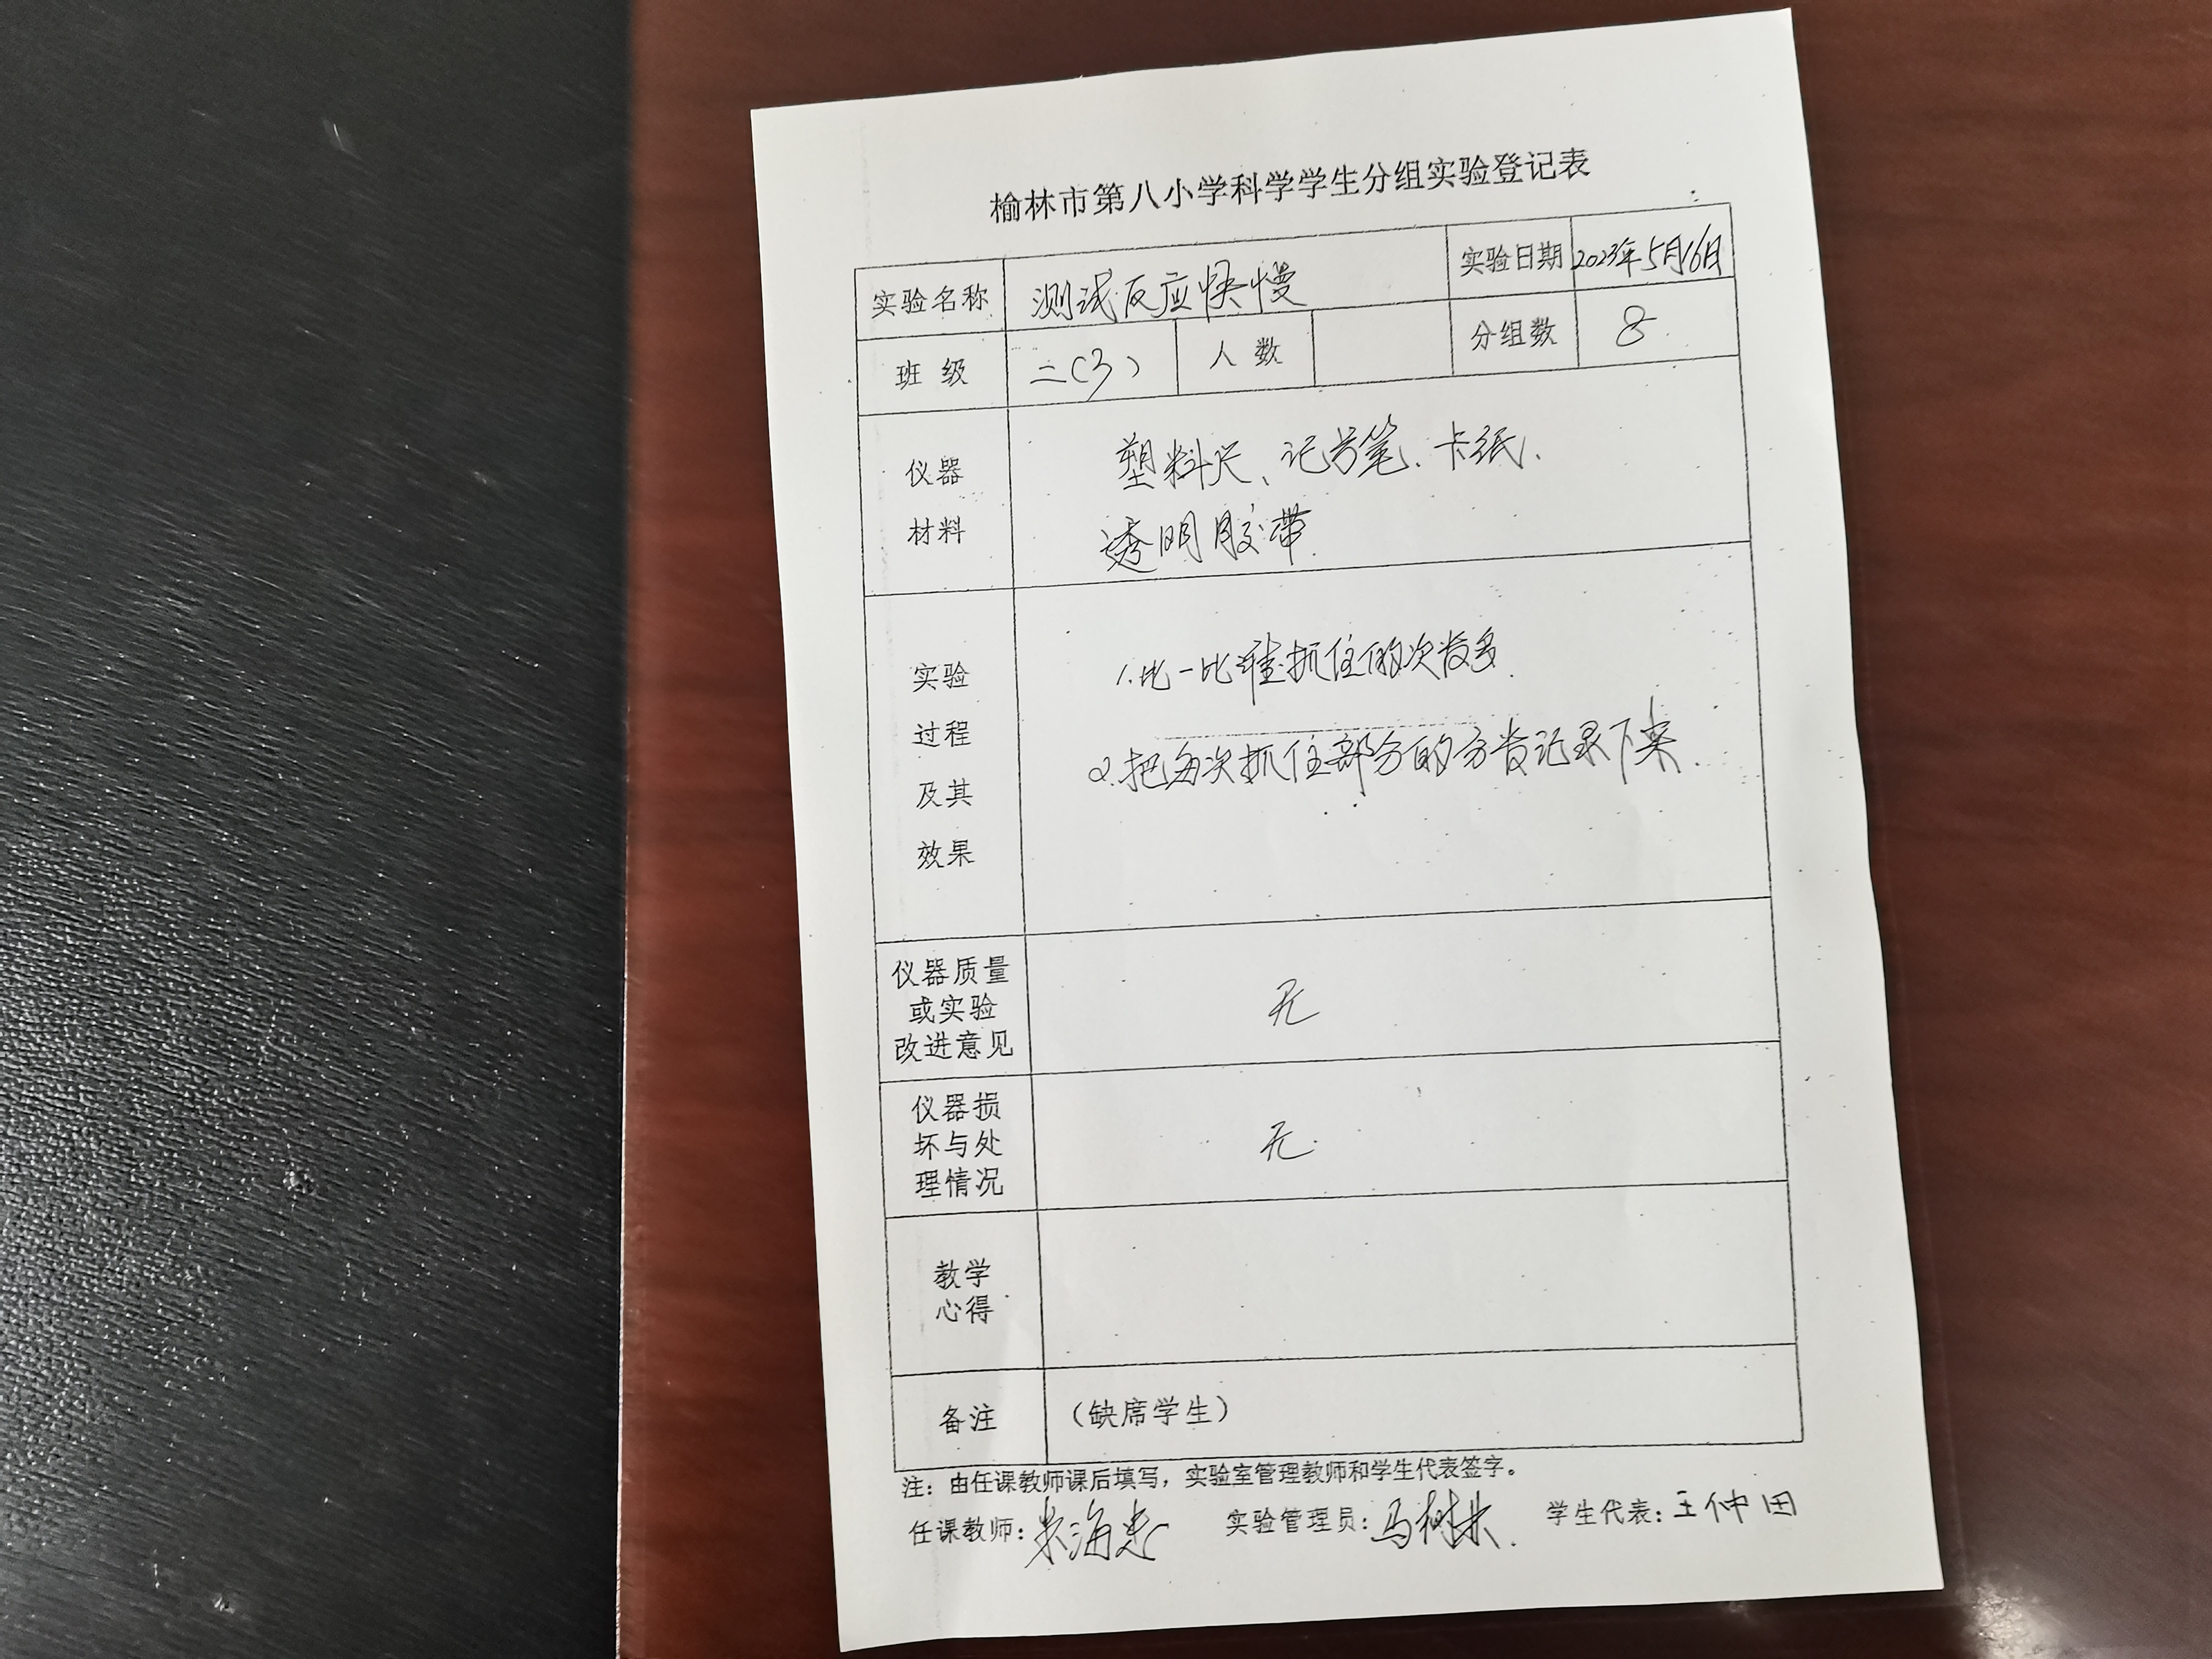 榆林市第八小学科学学生分组实验登记表
实验名称 测试反应快慢 实验日期 2023年5月16日
班 级 二(3) 人 数 分组数 8
仪器
材料
塑料尺、记号笔、卡纸、
透明胶带
实验
过程
及其
效果
1.比一比谁抓住的次数多
2.把每次抓住部分的分数记录下来.
仪器质量
或实验
改进意见
无
仪器损
坏与处
理情况
无
教学
心得
备注 （缺席学生）
注：由任课教师课后填写，实验室管理教师和学生代表签字。
任课教师： 实验管理员： 学生代表：王仲田